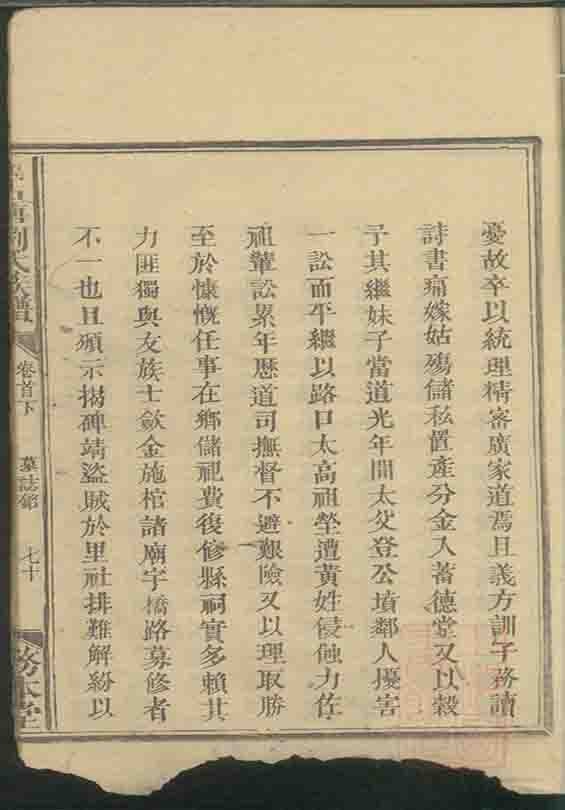 憂故卒以統理精審廣家道焉且義方訓子務讀
詩書痛嫁姑殤儲私置產分金入蓄德堂又以穀
予其繼妹子當道光年間太父登公墳鄰人擾害
一訟而平繼以路口太高祖塋遭黃姓侵蝕力佐
祖輩訟累年歷道司撫督不避艱險又以理取勝
至於慷慨任事在鄉儲祀費復修縣祠實多賴其
力匪獨與友族士歛金施棺諸廟宇橋路募修者
不一也且頒示揭碑靖盜賊於里社排難解紛以
劉氏族譜
卷首下
墓誌銘
七十
務本堂